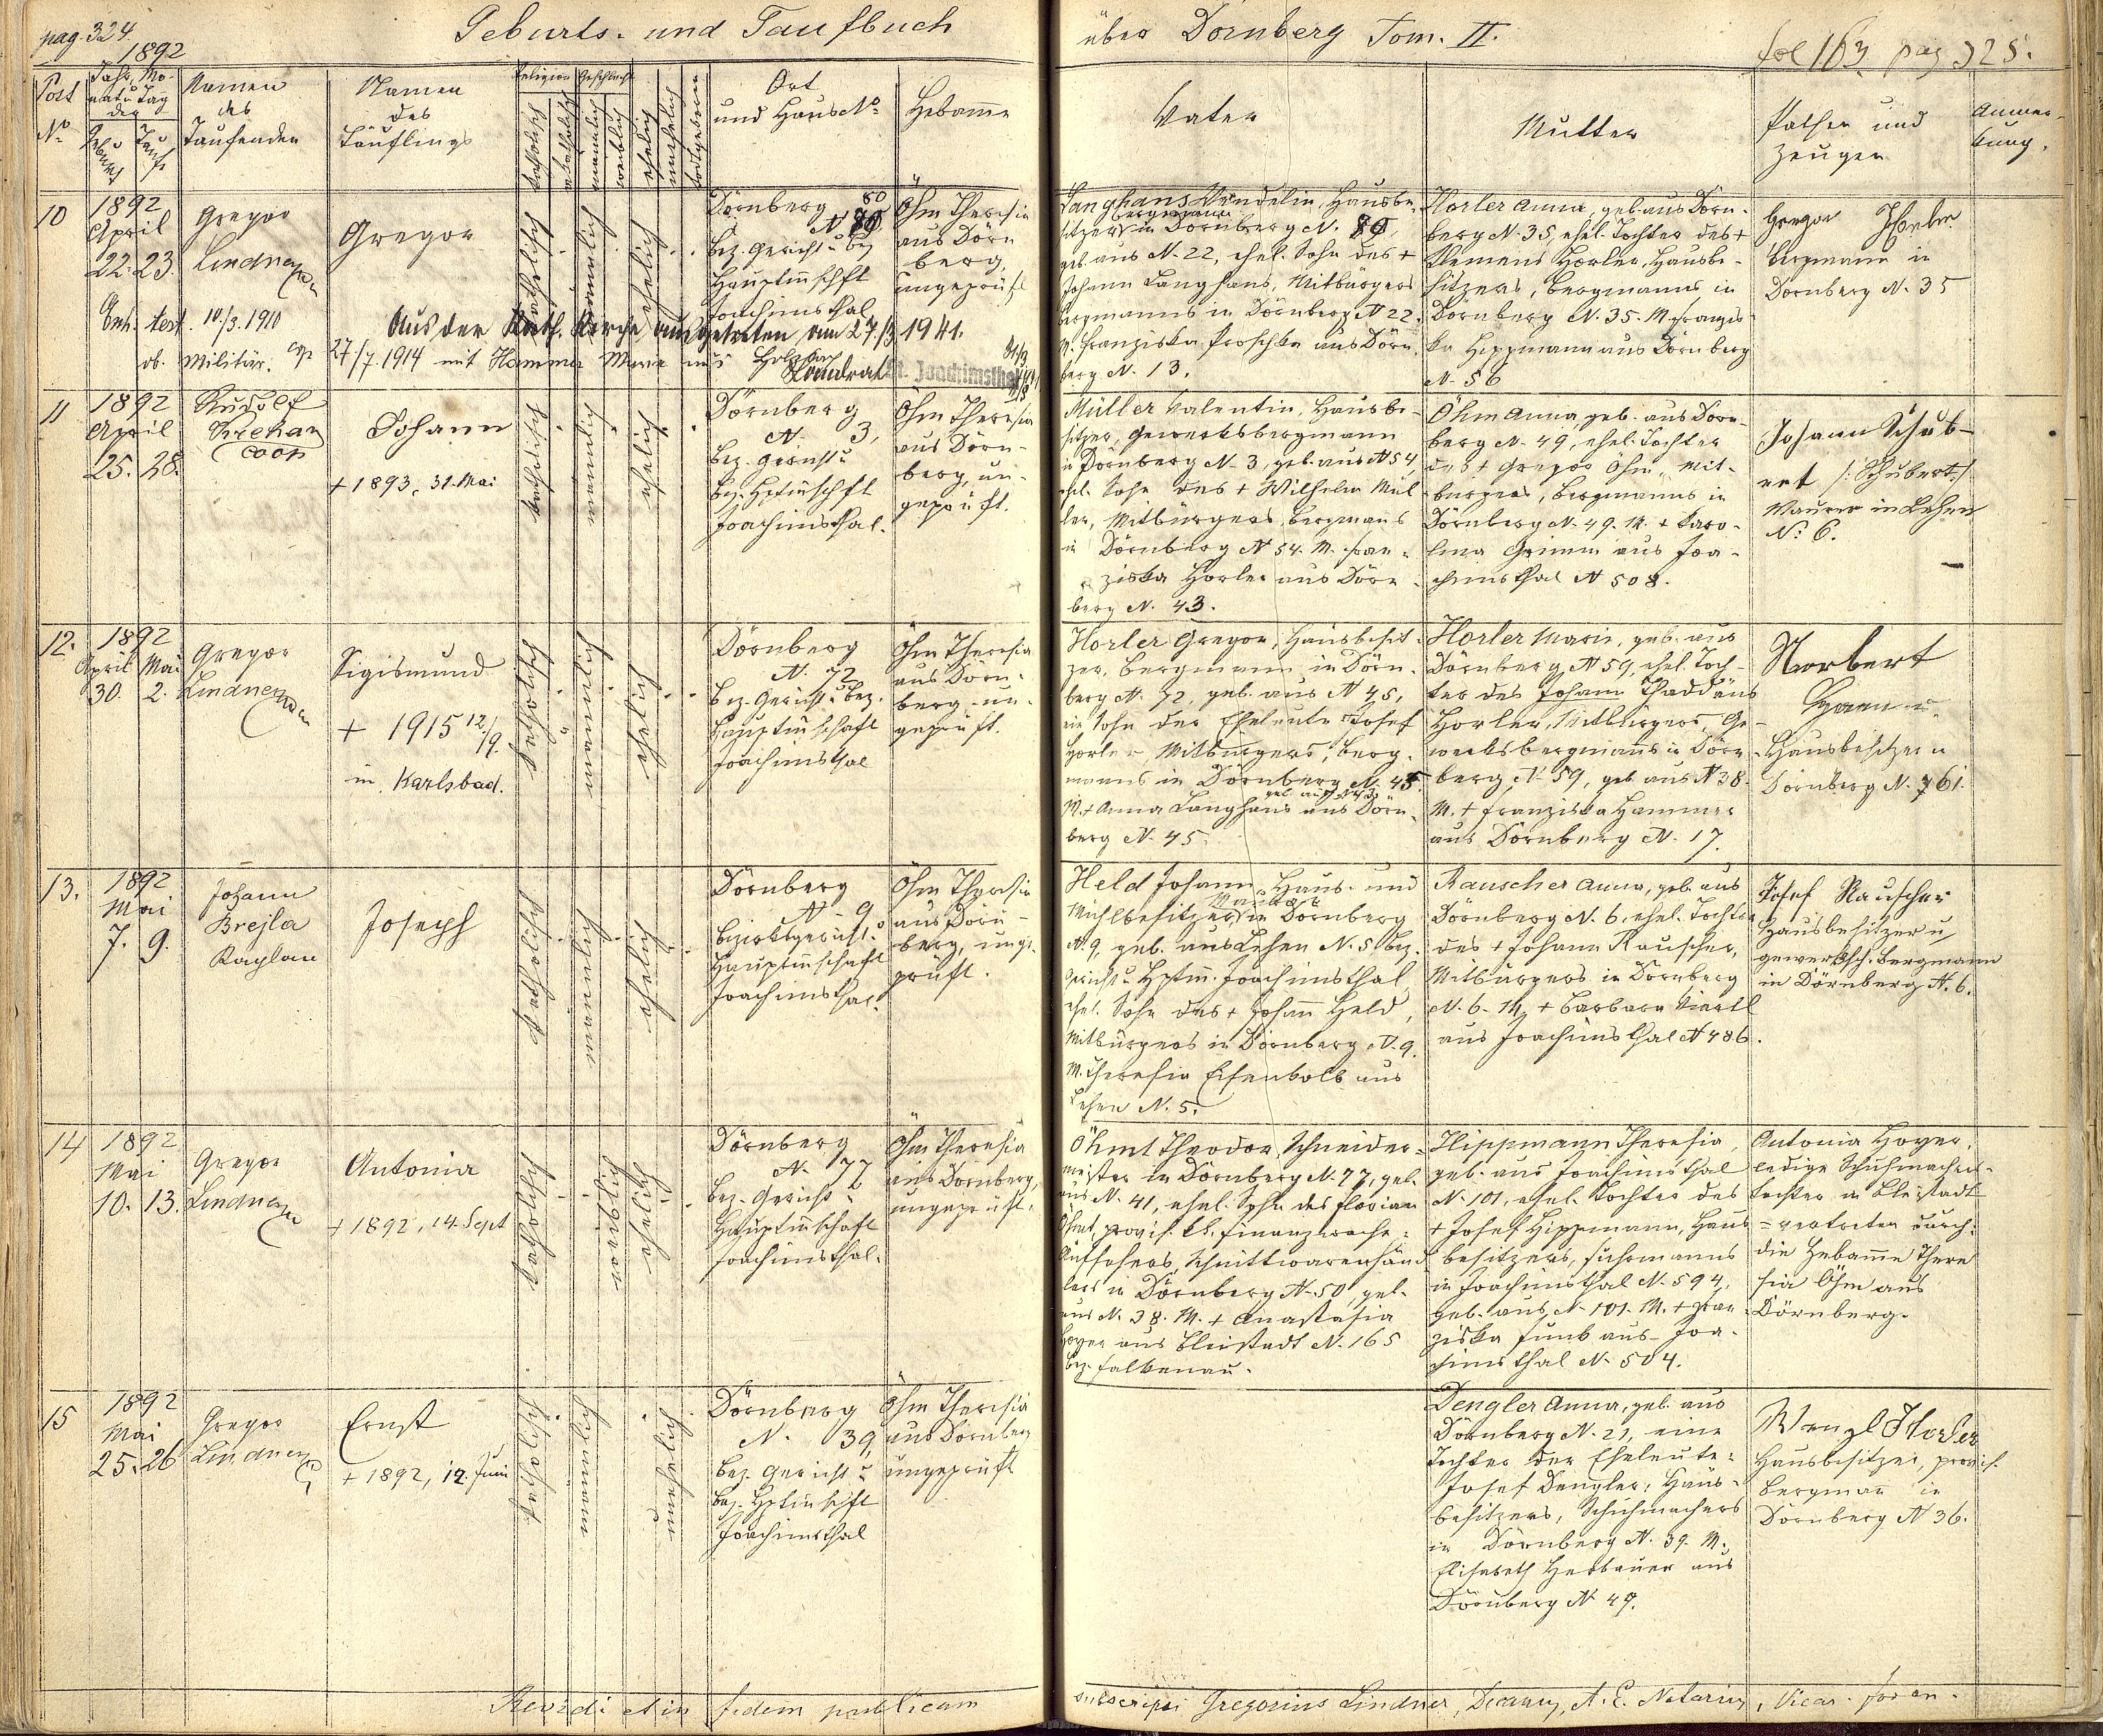 pag. 324.
Geburts- und Taufbuch
über Dörnberg Tom. II.
fol 163 pag 325.
1892
Post
No
Jahr, Mo-
nat u Tag
der
Geburt
Taufe
Namen
des
Taufenden
Namen
des
Täuflings
Religion
katholisch
akatholisch
Geschlecht
männlich
weiblich
ehelich
unehelich
todtgeboren
Ort
und Haus No
Hebamme
Vater
Mutter
Pathen und
Zeugen
Anmer-
kung.
10
1892
April
22. 23.
Gregor
Lindner
Gregor
katholisch
männlich
ehelich
Dörnberg 80
N 80
Bez. Gericht u Bez
Hauptmschft
Joachimsthal
Öhm Theresia
aus Dörn
berg,
ungeprüft
test. 10./3. 1910
Aus der Kath. Kirche ausgetreten am 27/3 1941.
ob. Militär. cop 27/7. 1914 mit Hammer Marie aus Holzbach
Landrat St. Joachimsthal
Langhans Wendelin, Hausbe-
Bergmann
sitzers in Dörnberg N. 80,
geb. aus N. 22, ehel. Sohn des +
Johann Langhans, Mitbürgers
Bergmanns in Dörnberg N 22.
M. Franziska Proschka aus Dörn
berg N. 13.
Horler Anna, geb. aus Dörn-
berg N. 35, ehel. Tochter des +
Klemens Horler, Hausbe-
sitzers, Bergmanns in
Dörnberg N. 35. M. Franzis
ka Hippmann aus Dörnberg
N. 56
Gregor Horler
Bergmann in
Dörnberg N. 35
11
1892
April
25. 28.
Rudolf
Krehan
Coop
Johann
+ 1893, 31. Mai
katholisch
männlich
ehelich
Dörnberg
N. 3,
Bez. Gericht u
Bez. Hptmschft
Joachimsthal.
Öhm Theresia
aus Dörn-
berg, un-
geprüft.
Müller Valentin, Hausbe-
sitzer, Gewerksbergmann
in Dörnberg N. 3, geb. aus N 54,
ehel. Sohn des + Wilhelm Mül
ler, Mitbürgers, Bergmans
in Dörnberg N 54. M. Fran-
ziska Horler aus Dörn-
berg N. 43.
Öhm Anna, geb. aus Dörn-
berg N. 49, ehel. Tochter
des + Gregor Öhm, Mit-
bürgers, Bergmanns in
Dörnberg N. 49. M. + Karo-
lina Grimm aus Joa-
chimsthal N 508.
Johann Schub-
ert /: Schubert :/
Maurer in Lehen
No 6.
12.
1892
April Mai
30. 2.
Gregor
Lindner
Sigismund
+ 1915 12./9.
in Karlsbad.
katholisch
männlich
ehelich
Dörnberg
N. 72
Bez. Gericht u Bez.
Hauptmschaft
Joachimsthal
Öhm Theresia
aus Dörn-
berg un-
geprüft.
Horler Gregor, Hausbesit-
zer, Bergmann in Dörn-
berg N. 72, geb. aus N 45,
ein Sohn der Eheleute Josef
Horler, Mitbürgers, Berg-
manns in Dörnberg N. 45.
geb. aus N 43.
M. + Anna Langhans aus Dörn-
berg N. 45.
Horler Maria, geb. aus
Dörnberg N 59, ehel. Toch-
ter des Johann Thaddäus
Horler, Mitbürgers, Ge-
werksbergmanns in Dörn
berg N. 59, geb. aus N 38.
M. + Franziska Hammer
aus Dörnberg N. 17.
Norbert
Hausbesitzer in
Dörnberg N. 761.
13.
1892
Mai
7. 9.
Johann
Brejla
Kaplan
Joseph
katholisch
männlich
ehelich
Dörnberg
N. 9
Bezirksgericht u
Hauptmschaft
Joachimsthal.
Öhm Theresia
aus Dörn-
berg, unge-
prüft.
Held Johann, Haus- und
Mühlbesitzers in Dörnberg
N. 9, geb. aus Lehen N. 5 Bez.
Gericht u Hptm. Joachimsthal,
ehel. Sohn des + Johann Held,
Mitbürgers in Dörnberg N. 9.
M. Theresia Eisenkolb aus
Lehen N. 5.
Rauscher Anna, geb. aus
Dörnberg N. 6, ehel. Tochter
des + Johann Rauscher,
Mitbürgers in Dörnberg
N. 6. M. + Barbara Viertl
aus Joachimsthal N 486.
Josef Rauscher
Hausbesitzer u
gewerksch. Bergmann
in Dörnberg N. 6.
14
1892
Mai
10. 13.
Gregor
Lindner
Antonia
+ 1892, 14. Sept
katholisch
weiblich
ehelich
Dörnberg
N. 77
Bez. Gericht u
Hauptmschaft
Joachimsthal.
Öhm Theresia
aus Dörnberg,
ungeprüft.
Öhmt Theodor, Schneider-
meister in Dörnberg N. 77, geb.
aus N. 41, ehel. Sohn des Florian
Öhmt, provis. kk. Finanzwach-
Aufsehers, Schnittwarenhänd
lers in Dörnberg N. 50, geb.
aus N. 38. M. + Anastasia
Hoyer aus Bleistadt N. 165
Bez. Falkenau.
Hippmann Theresia,
geb. aus Joachimsthal
N. 101, ehel. Tochter des
+ Josef Hippmann, Haus
besitzers, Fuhrmanns
in Joachimsthal N. 594,
geb. aus N. 101. M. + Fran
ziska Funk aus Joa-
chimsthal N. 504.
Antonia Hoyer,
ledige Schuhmachers-
tochter in Bleistadt
= vertreten durch:
die Hebamme There
sia Öhm aus
Dörnberg.
15
1892
Mai
25. 26
Gregor
Lindner
Ernst
+ 1892, 12. Juni
katholisch
männlich
unehelich
Dörnberg
N. 39,
Bez. Gericht u
Bez. Hptmschft
Joachimsthal
Öhm Theresia
aus Dörnberg
ungeprüft
Dengler Anna, geb. aus
Dörnberg N. 21, eine
Tochter der Eheleute:
Josef Dengler, Haus-
besitzers, Schuhmachers
in Dörnberg N. 39. M.
Elisabeth Herbauer aus
Dörnberg N 49.
Wenzl Horler
Hausbesitzer, provis.
Bergmann in
Dörnberg N 36.
Revidi et in fidem publicam
subscripsi Gregorius Lindner, Decanus, A. E. Notarius, Vicar. foran.